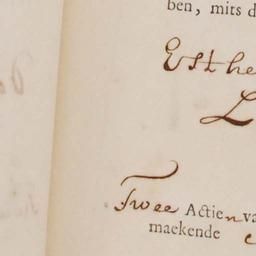 ben, mits d
Esthe
L
Twee Actien va
maekende